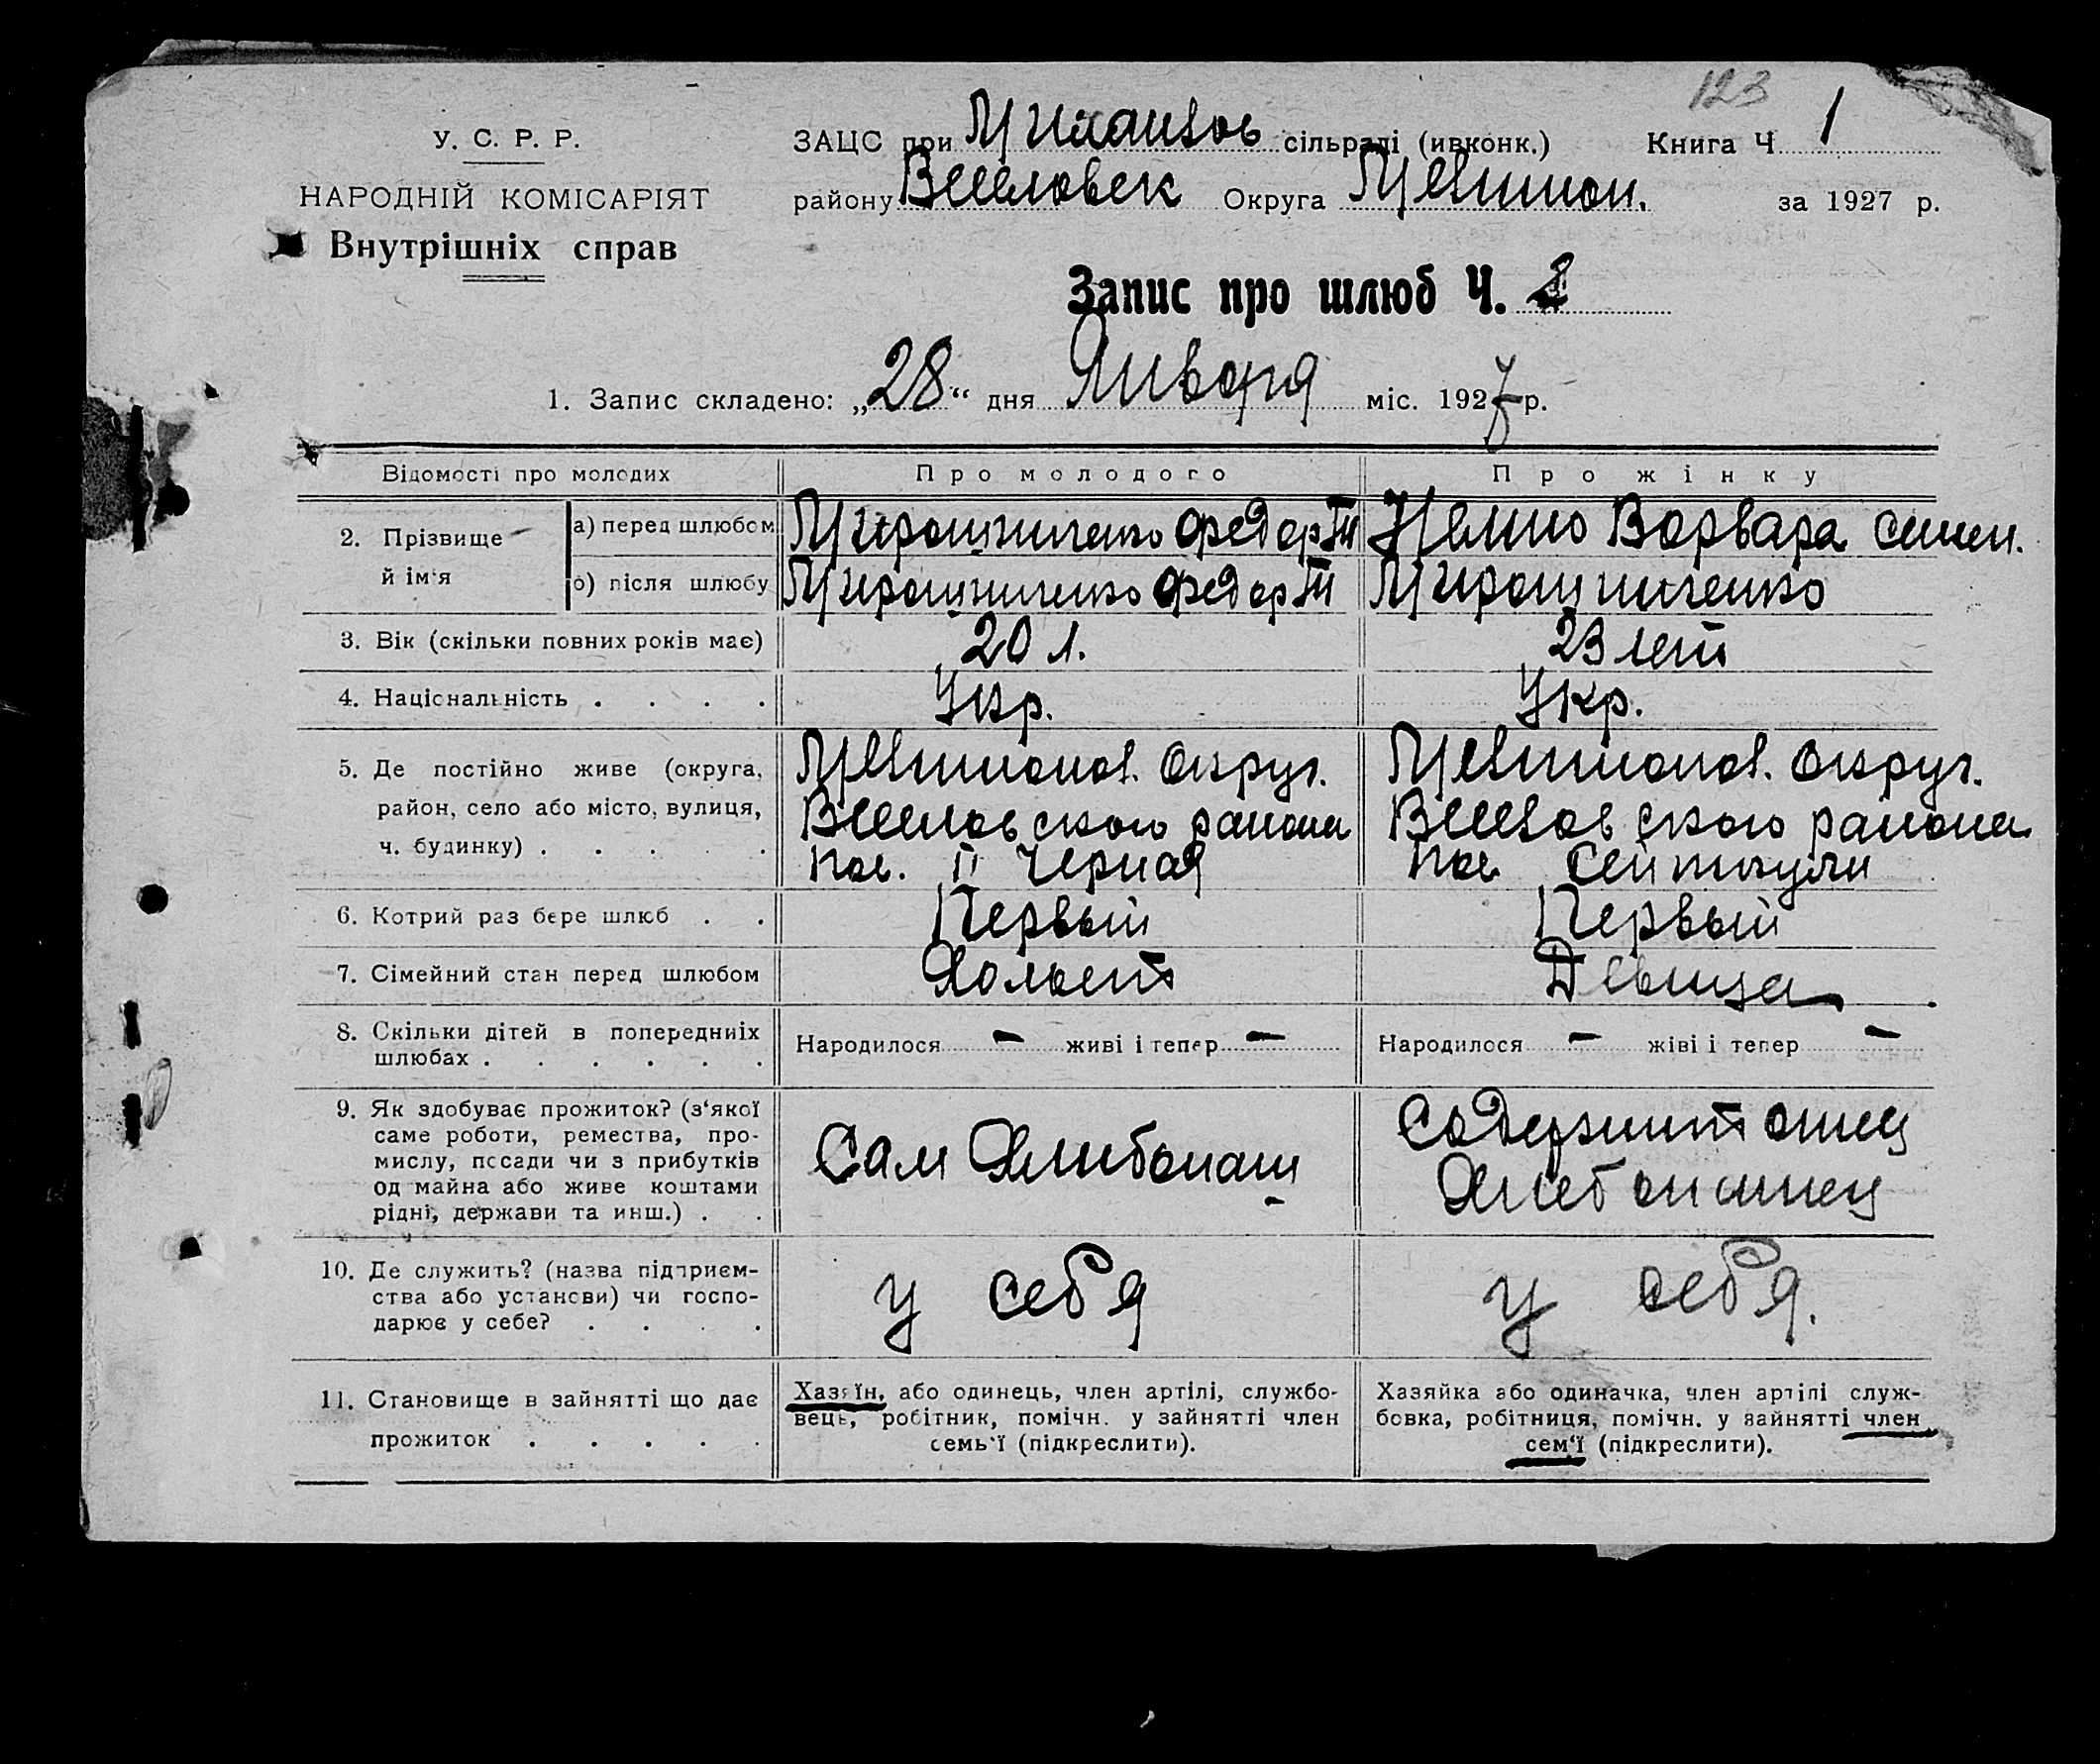 123
У. С. Р. Р.
НАРОДНІЙ КОМІСАРІЯТ
Внутрішніх справ
ЗАЦС при сільраді (ивконк.) Книга Ч 1
району Веселовск Округа Мелитоп. за 1927 р.
Запис про шлюб Ч. 2
1. Запис складено: „28“ дня Января міс. 1927 р.
Відомості про молодих Про молодого Про жінку
2. Прізвище й ім‘я
а) перед шлюбом Мирошниченко Федор Т Варвара Семен.
б) після шлюбу Мирошниченко Федор Т Мирошниченко
3. Вік (скільки повних років має) 20 л. 23 лет
4. Національність . . . . Укр. Укр.
5. Де постійно живе (округа, район, село або місто, вулиця, ч. будинку) . . . . .
Мелитопол. округ.
Веселовского района
пос. II Черная
Мелитопол. округ.
Веселовского района
пос
6. Котрий раз бере шлюб . . Первый Первый
7. Сімейний стан перед шлюбом Холост Девица
8. Скільки дітей в попередниіх шлюбах . . . . . .
Народилося – живі і тепер –
Народилося – жіві і тепер –
9. Як здобуває прожиток? (з‘якої
саме роботи, ремества, про-
мислу, посади чи з прибутків
од майна або живе коштами
рідні, держави та инш.) . .
Сам Хлибопаш
Содержит отец
Хлебопашец
10. Де служить? (назва підприєм-
ства або установи) чи госпо-
дарює у себе? . . . .
у себя
у себя.
11. Становище в зайнятті що дає
прожиток . . . . .
Хазяїн, або одинець, член артілі, службо-
вець, робітник, помічн. у зайнятті член
семь‘ї (підкреслити).
Хазяйка або одиначка, член артілі служ-
бовка, робітниця, помічн. у зайнятті член
сем‘ї (підкреслити).